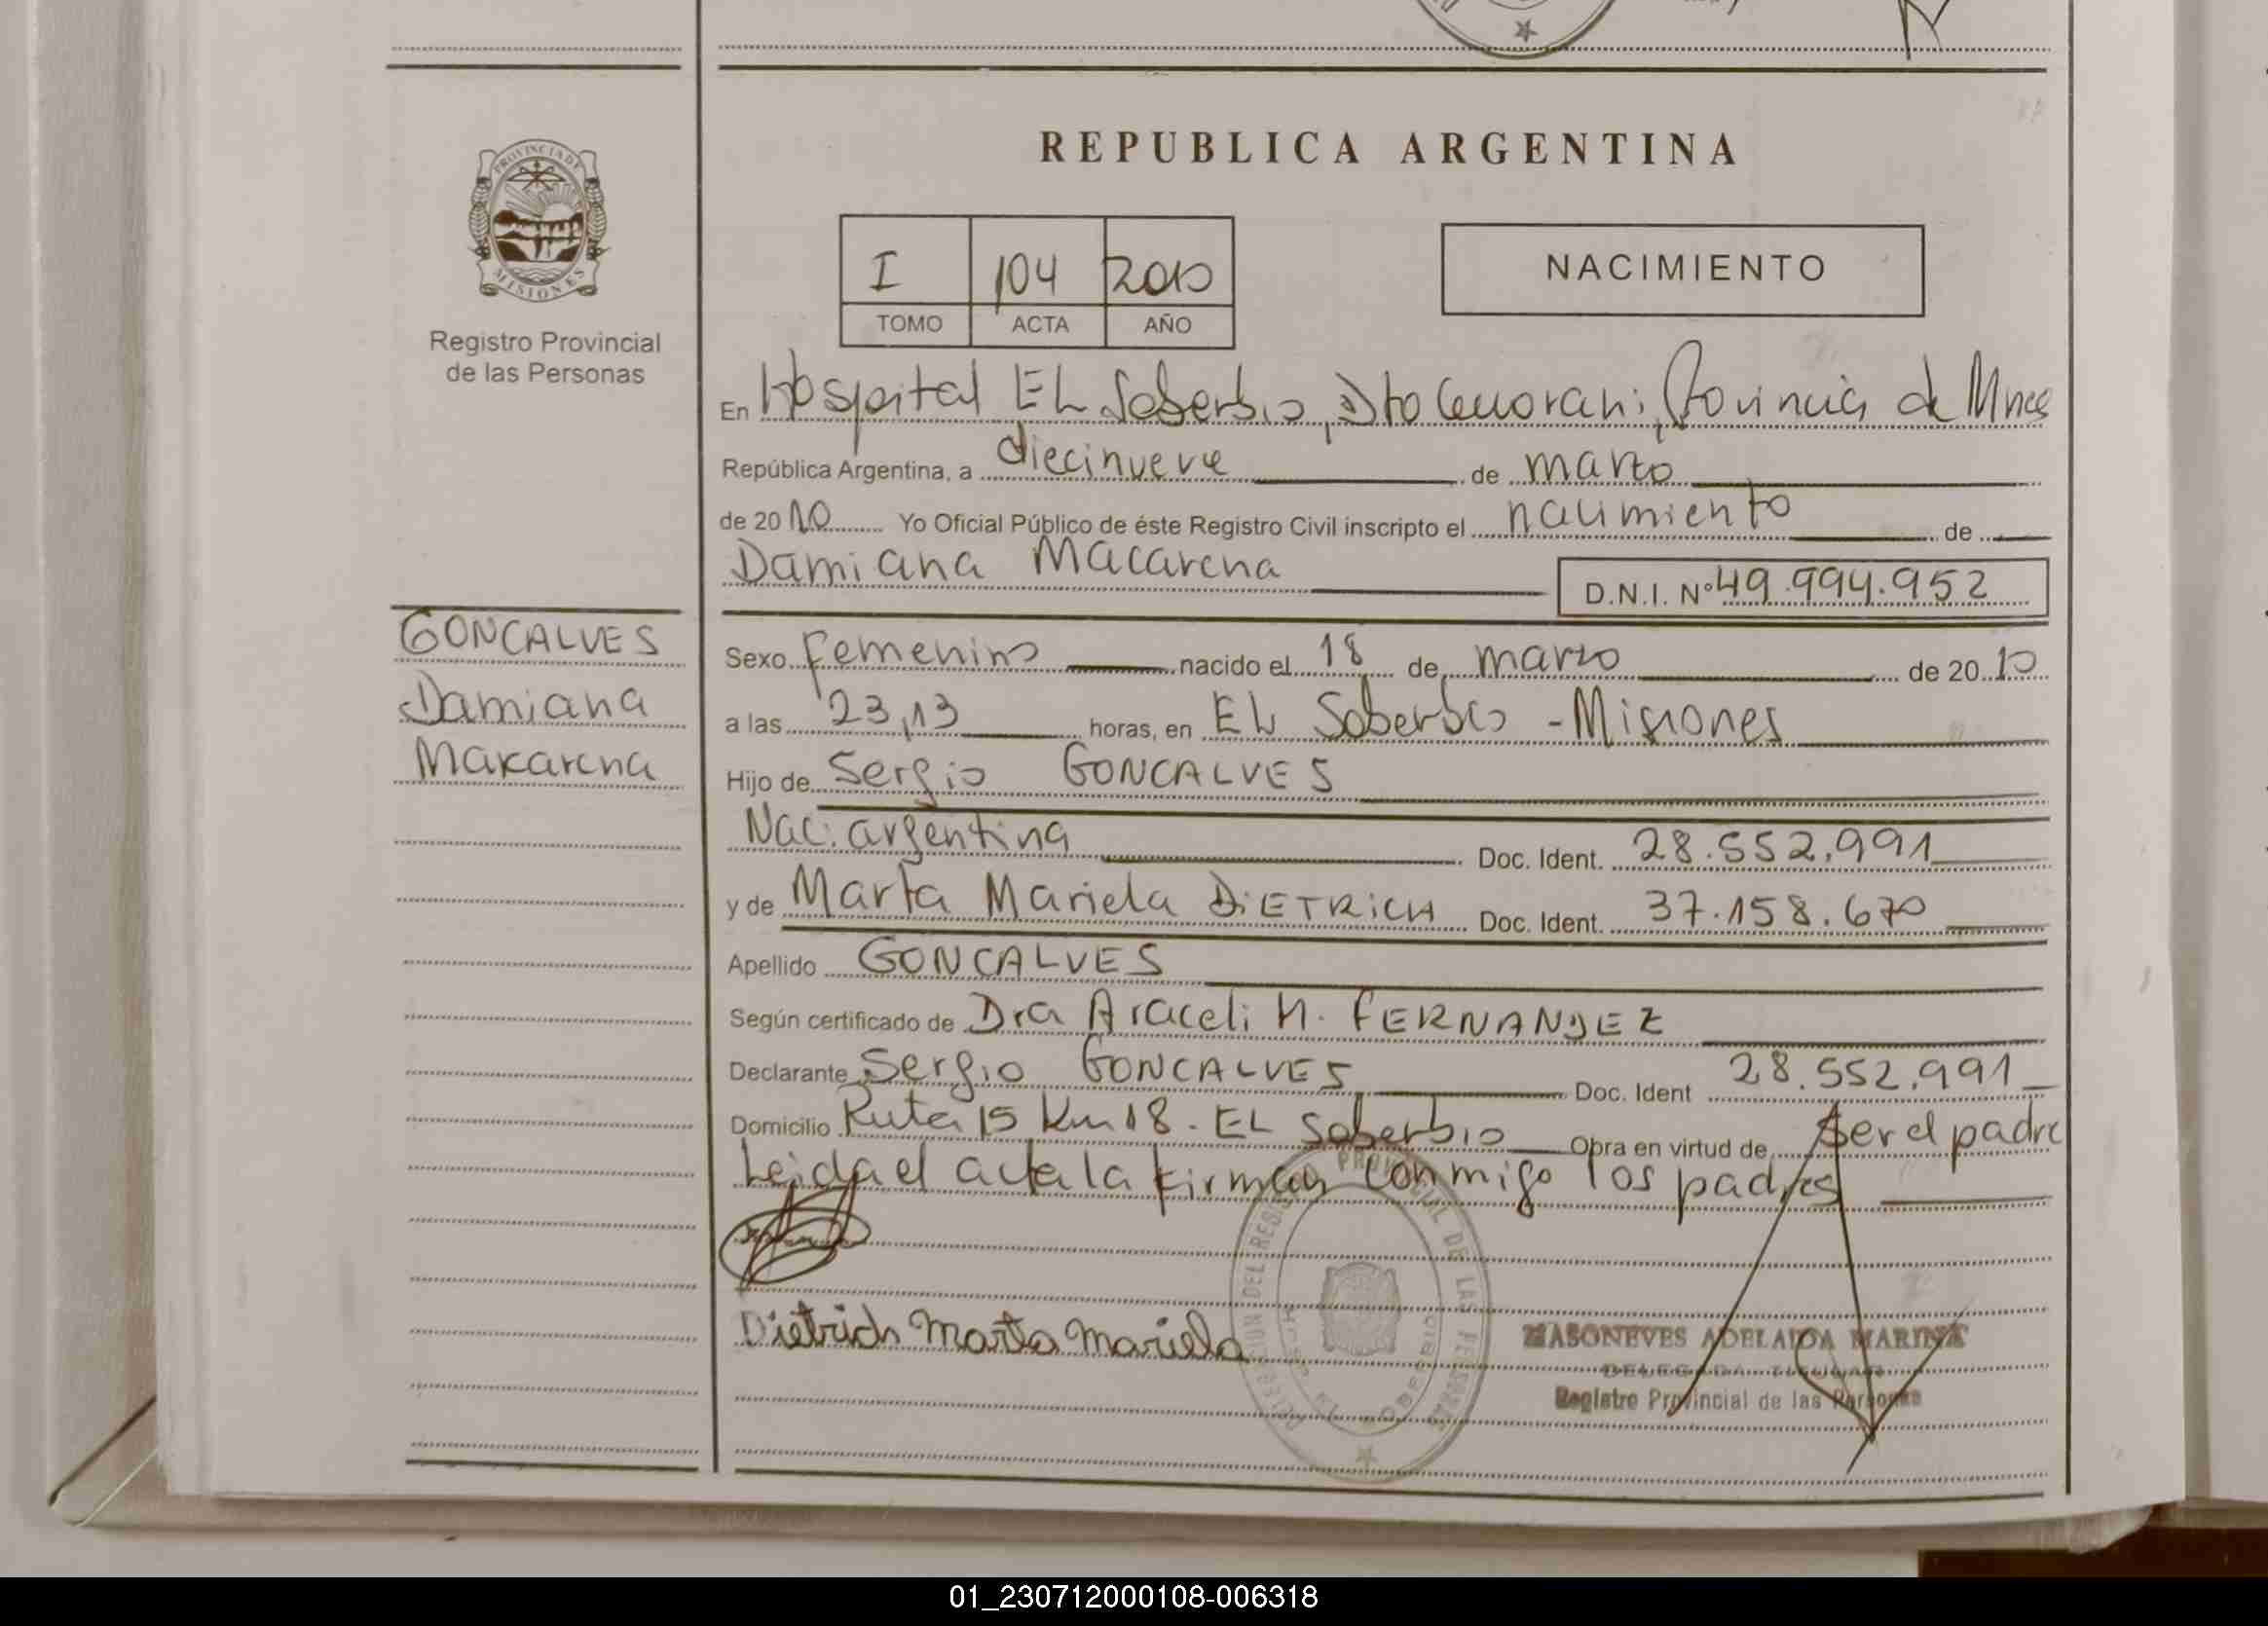 REPUBLICA ARGENTINA
PROVINCIA DE
MISIONES
Registro Provincial
de las Personas
I 104 2010
TOMO ACTA AÑO
NACIMIENTO
En Hospital EL Soberbio, Dto Guarani, Provincia de Mnes
República Argentina, a diecinueve de marzo
de 2010 Yo Oficial Público de éste Registro Civil inscripto el nacimiento de
Damiana Macarena D.N.I. Nº 49.994.952
GONCALVES
Damiana
Makarena
Sexo Femenino nacido el 18 de marzo de 2010
a las 23,13 horas, en EL Soberbio - Misiones
Hijo de Sergio GONCALVES
Nac. argentina Doc. Ident. 28.552.991
y de Marta Mariela DiETRiCH Doc. Ident. 37.158.670
Apellido GONCALVES
Según certificado de Dra Araceli N. FERNANDEZ
Declarante Sergio GONCALVES Doc. Ident 28.552.991
Domicilio Ruta 15 Km 18 - EL Soberbio Obra en virtud de Ser el padre
Leida el acta la firman conmigo los padres
Dietrich Marta Mariela
MASONEVES ADELAIDA MARINA
DELEGADA TITULAR
Registro Provincial de las Personas
01_230712000108-006318